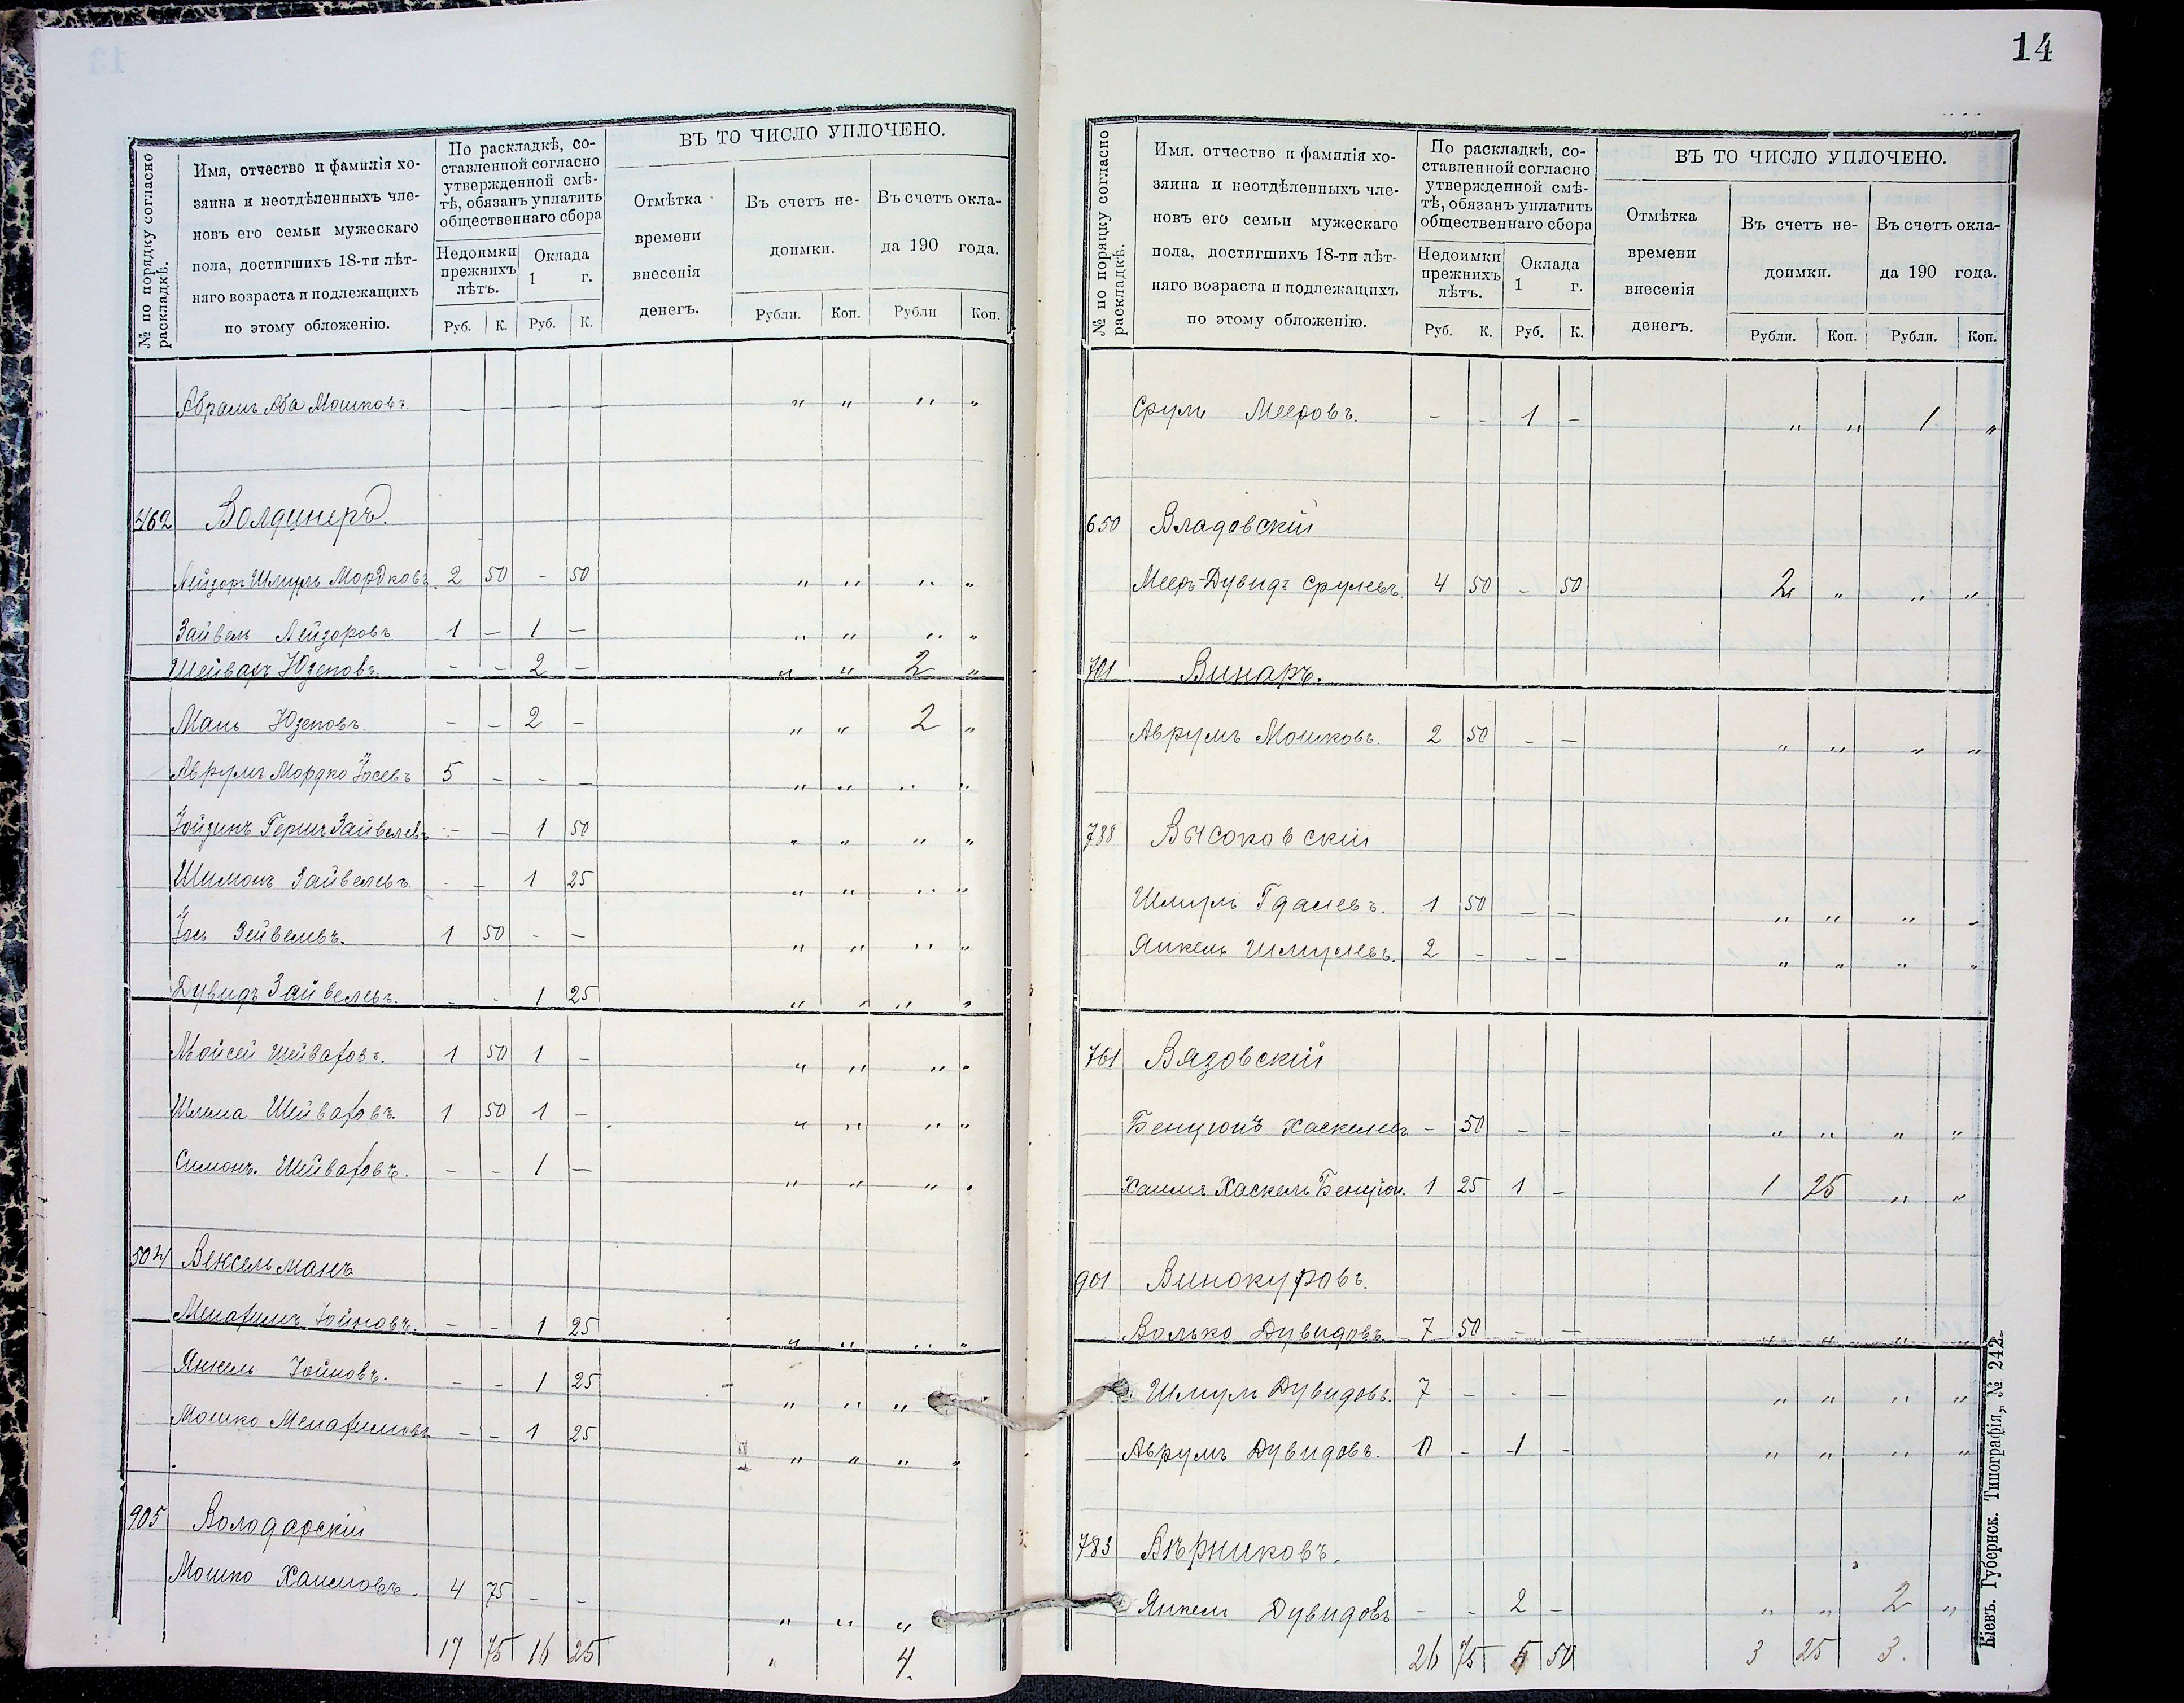 14
№ по порядку согласно раскладкѣ.
Имя, отчество и фамилія хо-
зяина и неотдѣленныхъ чле-
новъ его семьи мужескаго
пола, достигшихъ 18-ти лѣт-
няго возраста и подлежащихъ
по этому обложенію.
По раскладкѣ, со-
ставленной согласно
утвержденной смѣ-
тѣ, обязанъ уплатить
общественнаго сбора
Недоимки прежнихъ лѣтъ.
Оклада 1 г.
Руб. К. Руб. К.
ВЪ ТО ЧИСЛО УПЛОЧЕНО.
Отмѣтка времени внесенія денегъ.
Въ счетъ не- доимки.
Въ счетъ окла- да 190 года.
Рубли. Коп. Рубли Коп.
Абрамъ Аба Мошковъ. — — — — „ „ „ „
462 Волдинеръ.
Лейзоръ Шмуль Мордковъ. 2 50 - 50 „ „ „ „
Зайвель Лейзоровъ 1 — 1 — „ „ „ „
Шейвахъ Юзеповъ. - - 2 - „ „ 2 „
Мань Юзеповъ. - - 2 - „ „ 2 „
Аврумъ Мордко Йосевъ 5 - - - „ „ „ „
Йойзипъ Гершъ Зайвелевъ - — 1 50 „ „ „ „
Шимонъ Зайвелевъ. - - 1 25 „ „ „ „
Йось Зейвелевъ. 1 50 - - „ „ „ „
Дувидъ Зайвелевъ. - - 1 25 „ „ „ „
Мойсей Шейваховъ. 1 50 1 - „ „ „ „
Шлема Шейваховъ. 1 50 1 - „ „ „ „
Симонъ. Шейваховъ. - - 1 — „ „ „ „
504 Вексельманъ
Менахимъ Йойновъ. - - 1 25 „ „ „ „
Янкель Йойновъ. - - 1 25 „ „ „
Мошко Менахимовъ - - 1 25 „ „ „ „
905 Володарскій
Мошко Хаимовъ. 4 75 - - „ „ „
17 75 16 25 „ 4.
№ по порядку согласно раскладкѣ.
Имя, отчество и фамилія хо-
зяина и неотдѣленныхъ чле-
новъ его семьи мужескаго
пола, достигшихъ 18-ти лѣт-
няго возраста и подлежащихъ
по этому обложенію.
По раскладкѣ, со-
ставленной согласно
утвержденной смѣ-
тѣ, обязанъ уплатить
общественнаго сбора
Недоимки прежнихъ лѣтъ.
Оклада 1 г.
Руб. К. Руб. К.
ВЪ ТО ЧИСЛО УПЛОЧЕНО.
Отмѣтка времени внесенія денегъ.
Въ счетъ не- доимки.
Въ счетъ окла- да 190 года.
Рубли. Коп. Рубли. Коп.
Сруль Мееровъ. - - 1 - „ „ 1 „
650 Владовскій
Мееръ-Дувидъ Срулевъ. 4 50 - 50 2 „ „ „
701 Винаръ.
Аврумъ Мошковъ. 2 50 - — „ „ „ „
788 Высоковскій
Шмуль Гдалевъ. 1 50 - - „ „ „ „
Янкель Шмулевъ. 2 - - - „ „ „ „
761 Вязовскій
Бенціонъ Хаскелевъ - 50 - - „ „ „ „
Хаимъ Хаскель Бенціон. 1 25 1 - 1 25 „ „
901 Винокуровъ.
Волько Дувидовъ. 7 50 - - „ „ „ „
Шмуль Дувидовъ. 7 - - — „ „ „ „
Аврумъ Дувидовъ. 0 - 1 - „ „ „ „
783 Вѣрниковъ.
Янкель Дувидовъ - - 2 - „ „ 2 „
26 75 5 50 3 25 3.
Кіевъ. Губернск. Типографія„ № 242.